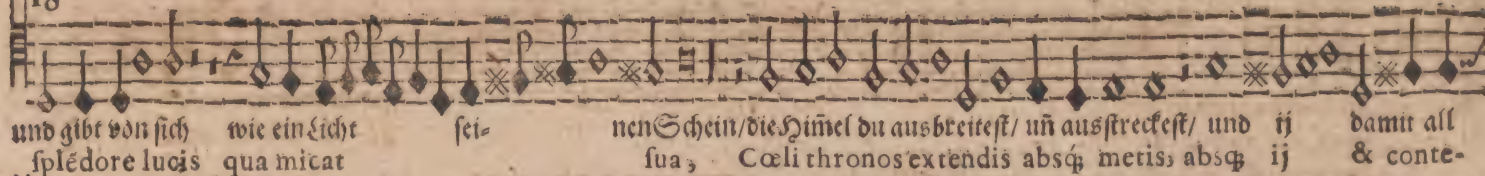 18
und gibt von sich wie ein Licht sei- nen Schein/die Him̃el du ausbreitest/ uñ ausstreckest/ und ij damit all
splẽdore lucis qua micat sua, Cœli thronos extendis absq́; metis, absq́; ij & conte-